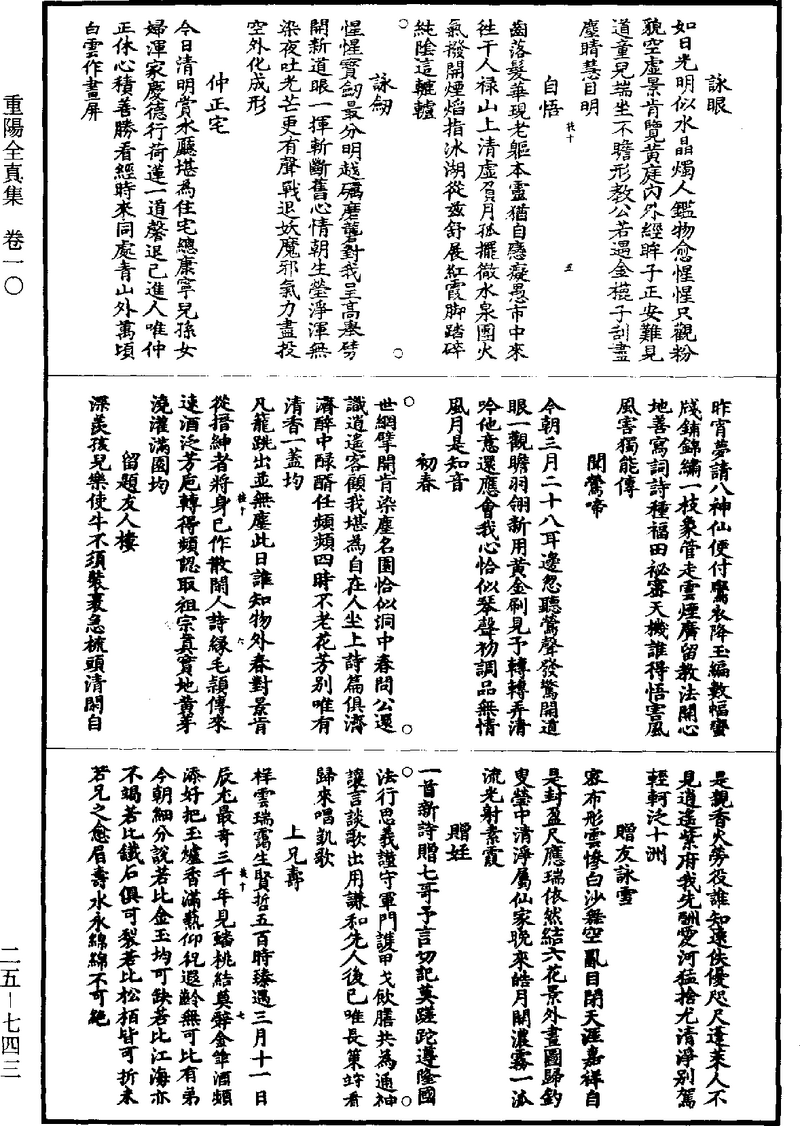 重陽全真集　卷一〇
二五—七四三
詠眼
如日光明似水晶燭人鑑物愈惺惺只觀粉
貌空虛景肯覽黃庭內外經眸子正安難見
道童兒端坐不瞻形教公若遇金槐子刮盡
塵睛慧目明
自悟
齒落髮華現老軀本靈猶自戀癡愚市中來
往干人祿山上清虛負月孤擺徹水泉團火
氣撥開煙焰指冰湖從茲舒展紅霞腳踏碎
純陰這轆轤
詠劒
惺惺寶劒最分明越礪磨礱對我呈高舉劈
開新道眼一揮斬斷舊心情朝生瑩淨渾無
染夜吐光芒更有聲戰退妖魔邪氣力盡投
空外化成形
仲正宅
今日清明賞水廳堪為住宅總康寧兒孫女
婦渾家慶德行荷蓮一道馨退己進人唯仲
正休心積善勝看經時來同處青山外萬頃
白雲作畫屏
昨宵夢請八神仙便付鸞衣降玉編數幅蠻
牋鋪錦繡一枝象管走雲煙廣留教法開心
地善寫詞詩種福田祕密天機誰得悟害風
風害獨能傳
聞鶯啼
今朝三月二十八耳邊忽聽鶯聲發驚開道
眼一觀瞻羽翎新用黃金刷見予轉轉弄清
吟他意還應會我心恰似琴聲初調品無情
風月是知音
初春
世網擘開肯染塵名園恰似洞中春問公還
識逍遙客顧我堪為自在人坐上詩篇俱濟
濟醉中醁醑任頻頻四時不老花芳別唯有
清香一蓋均
凡籠跳出並無塵此日誰知物外春對景肯
從搢紳者將身已作散閒人詩緣毛頴傳來
速酒泛芳巵轉得頻認取祖宗真實地黃芽
澆灌滿園均
留題友人樓
深羨孩兒樂使牛不須裝裹急梳頭清閑自
是親香火勞役誰知遠佚優咫尺蓬萊人不
見逍遙紫府我先酬愛河猛捨尤清淨別駕
輕軻泛十洲
贈友詠雪
密布彤雲慘白沙舞空亂目閉天涯嘉祥自
是封盈尺應瑞依然結六花景外畫圖歸釣
叟瑩中清淨屬仙家晚來皓月開濃霧一派
流光射素霞
贈姪
一首新詩贈七哥予言切記莫蹉跎遵隆國
法行思義謹守軍門護甲戈飲膳共為通神
讓言談歌出用謙和先人後己唯長策竚看
歸來唱凱歌
上兄壽
祥雲瑞靄生賢哲五百時臻遇三月十一日
辰尤最奇三千年見蟠桃結莫辭金鍾酒頻
添好把玉爐香滿爇仰祝遐齡無可比有弟
今朝細分說若比金玉均可缺若比江海亦
不竭若比鐵石俱可裂若比松栢皆可折未
若兄之愈眉壽水永綿綿不可絕